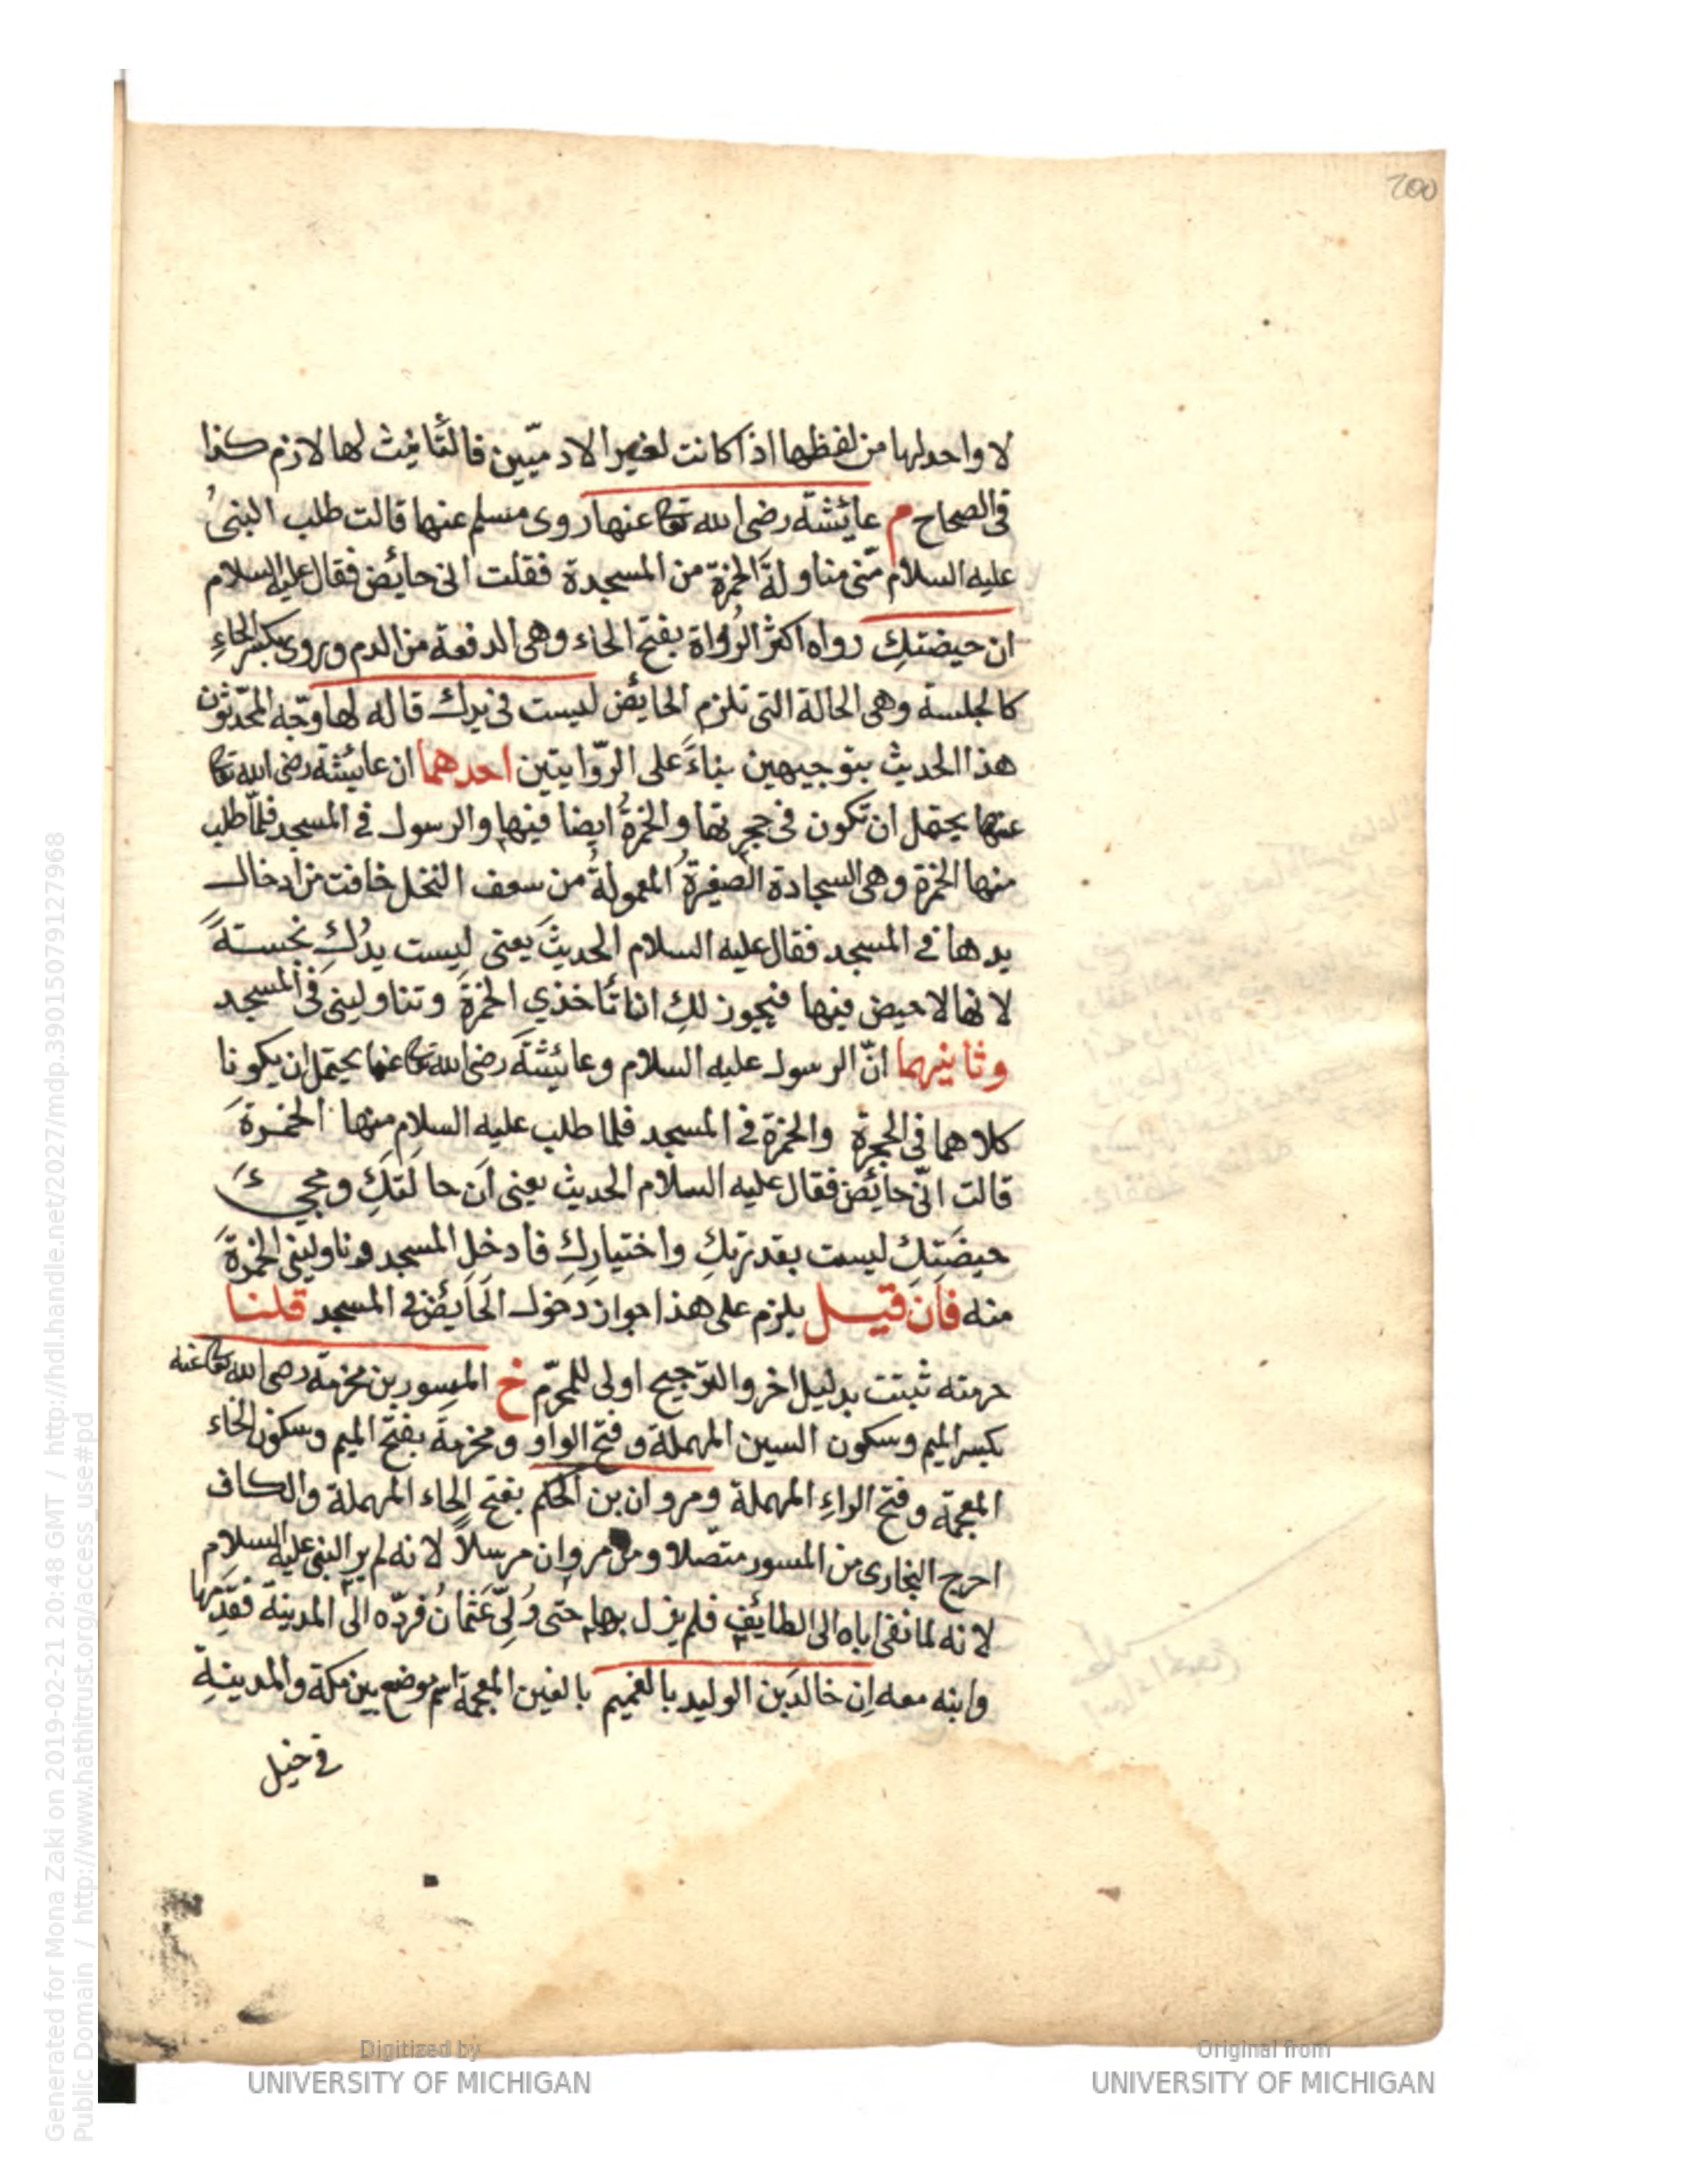 200
لا واحد لها من لفظها اذا كانت لغير الادميّين فالتّانيث لها لازم كذا
فى الصحاح م عائشة رضى الله تعالى عنها روى مسلم عنها قالت طلب النبىُ
عليه السلام منّى مناولةَ الخمرة من المسجدة فقلت انى حايض فقال عليه السلام
ان حيضتكِ رواه اكثر الرُواة بفتح الحاء وهى الدفعة من الدم ويروى بكسر الحاءِ
كالجلسة وهى الحالة التى تلزم الحايض ليست فى يدك قاله لها وجّه المحّدثون
هذا الحديث بتوجيهين بناءً على الرّوايتين احدهما ان عائشة رضى الله تعالى
عنها يحتمل ان تكون فى حجرتها والخمرةُ ايضا فيها والرسول فى المسجد فلمّا طلب
منها الخمرة وهى السجادة الصغيرةُ المعمولةُ من سعف النخل خافت من ادخال
يدها فى المسجد فقال عليه السلام الحديثَ يعنى ليست يدُكِ نجسةً
لانها لا حيض فيها فيجوز لكِ ان تأخذي الخمرةَ وتناولينى فى المسجد
وثانيهما انّ الرسول عليه السلام وعائشةَ رضى الله تعالى عنها يحتمل ان يكونا
كلاهما فى الحجرة والخمرة فى المسجد فلما طلب عليه السلام منها الخمرةَ
قالت انّى حائض فقال عليه السلام الحديث يعنى ان حالتَكِ ومجيءَ
حيضَتِكِ ليست بقدرتكِ واختياركِ فادخل المسجد وناولينى الخمرةَ
منه فان قيل يلزم على هذا جواز دخول الحايض فى المسجد قلنا
حرمته ثبتت بدليل اخر والترجيح اولى للمحرّم خ المسور بن مخرمة رضى الله تعالى عنه
بكسر الميم وسكون السين المهملة وفتح الواو ومخرمة بفتح الميم وسكون الخاء
المعجمة وفتح الراءِ المهملة ومروان بن الحكم بفتح الحاء المهملة والكاف
اخرج البخارى من المسور متصّلا ومن مروان مرسلاً لانه لم ير النبى عليه السلام
لانه لما نفى اباه الى الطايف فلم يزل بها حتى وُلّىَ عثمانُ فردّه الى المدينة فقدّمها
وابنه معه ان خالدَ بن الوليد بالغميم بالغين المعجمة اسم موضع بين مكة والمدينةِ
فى خيل
Generated for Mona Zaki on 2019-02-21 20:48 GMT / http://hdl.handle.net/2027/mdp.39015079127968
Public Domain / http://www.hathitrust.org/access_use#pd
Digitized by
UNIVERSITY OF MICHIGAN
Original from
UNIVERSITY OF MICHIGAN